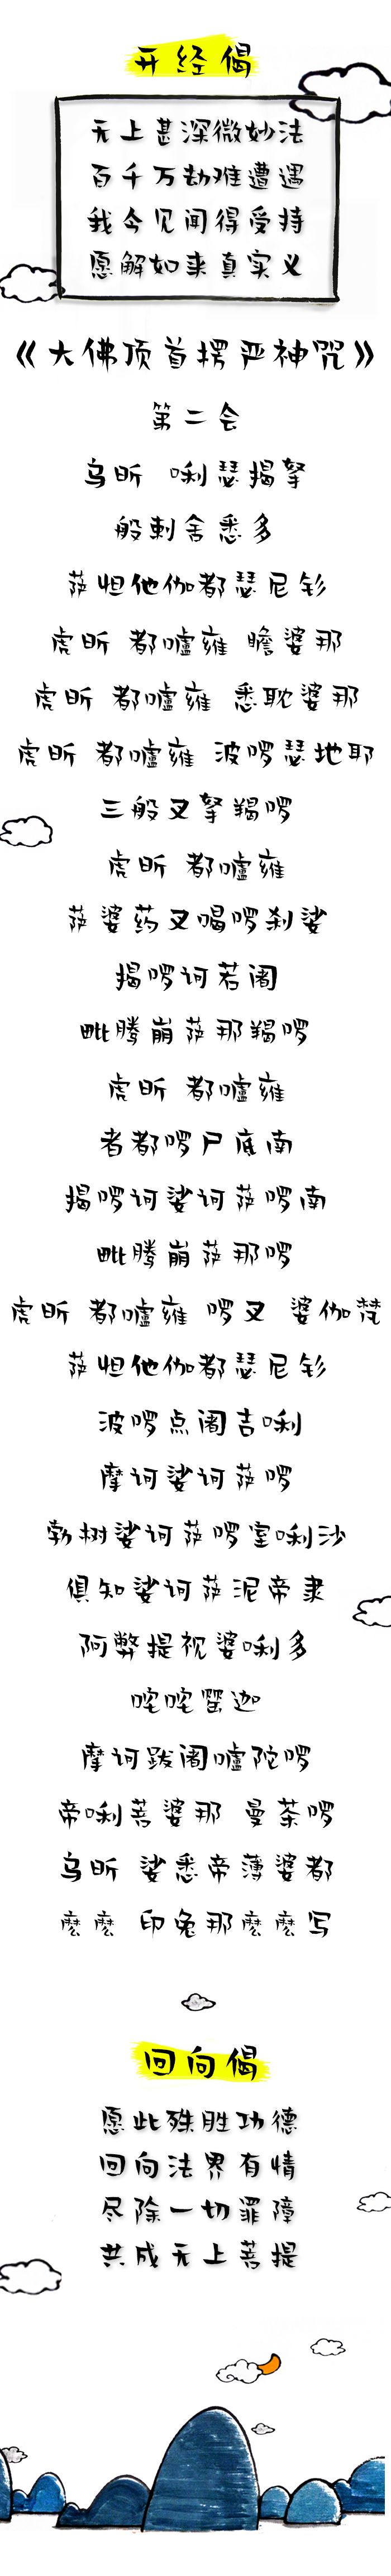 开经偈
无上甚深微妙法
百千万劫难遭遇
我今见闻得受持
愿解如来真实义
《大佛顶首楞严神咒》
第二会
乌昕 唎瑟揭拏
般剌舍悉多
萨怛他伽都瑟尼钐
虎昕 都嚧雍 瞻婆那
虎昕 都嚧雍 悉耽婆那
虎昕 都嚧雍 波啰瑟地耶
三般叉拏羯啰
虎昕 都嚧雍
萨婆药叉喝啰刹娑
揭啰诃若阇
毗腾崩萨那羯啰
虎昕 都嚧雍
者都啰尸底南
揭啰诃娑诃萨啰南
毗腾崩萨那啰
虎昕 都嚧雍 啰叉 婆伽梵
萨怛他伽都瑟尼钐
波啰点阇吉唎
摩诃娑诃萨啰
勃树娑诃萨啰室唎沙
俱知娑诃萨泥帝隶
阿弊提视婆唎多
咤咤罂迦
摩诃跋阇嚧陀啰
帝唎菩婆那 曼茶啰
乌昕 娑悉帝薄婆都
麽麽 印兔那麽麽写
回向偈
愿此殊胜功德
回向法界有情
尽除一切罪障
共成无上菩提